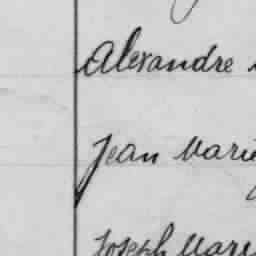 Alexandre
Jean Marie
Joseph Marie